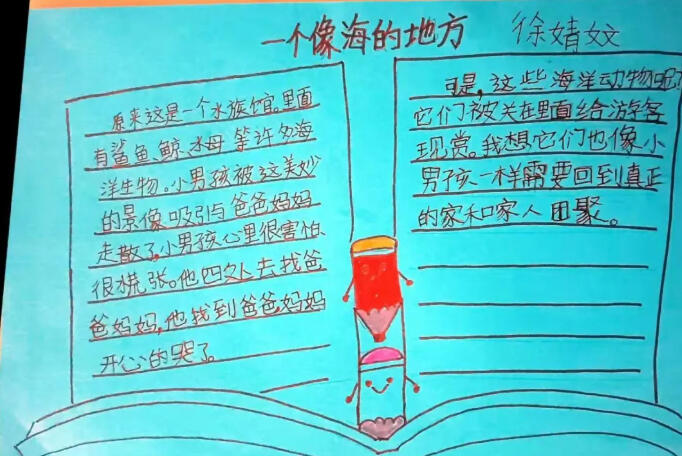 一个像海的地方 徐婧妏
原来这是一个水族馆。里面
有鲨鱼、鲸、水母、等许多海
洋生物。小男孩被这美妙
的景像吸引与爸爸妈妈
走散了,小男孩心里很害怕、
很慌张。他四处去找爸
爸妈妈,他找到爸爸妈妈
开心的哭了。
可是,这些海洋动物呢?
它们被关在里面给游客
现赏。我想它们也像小
男孩一样需要回到真正
的家和家人团聚。